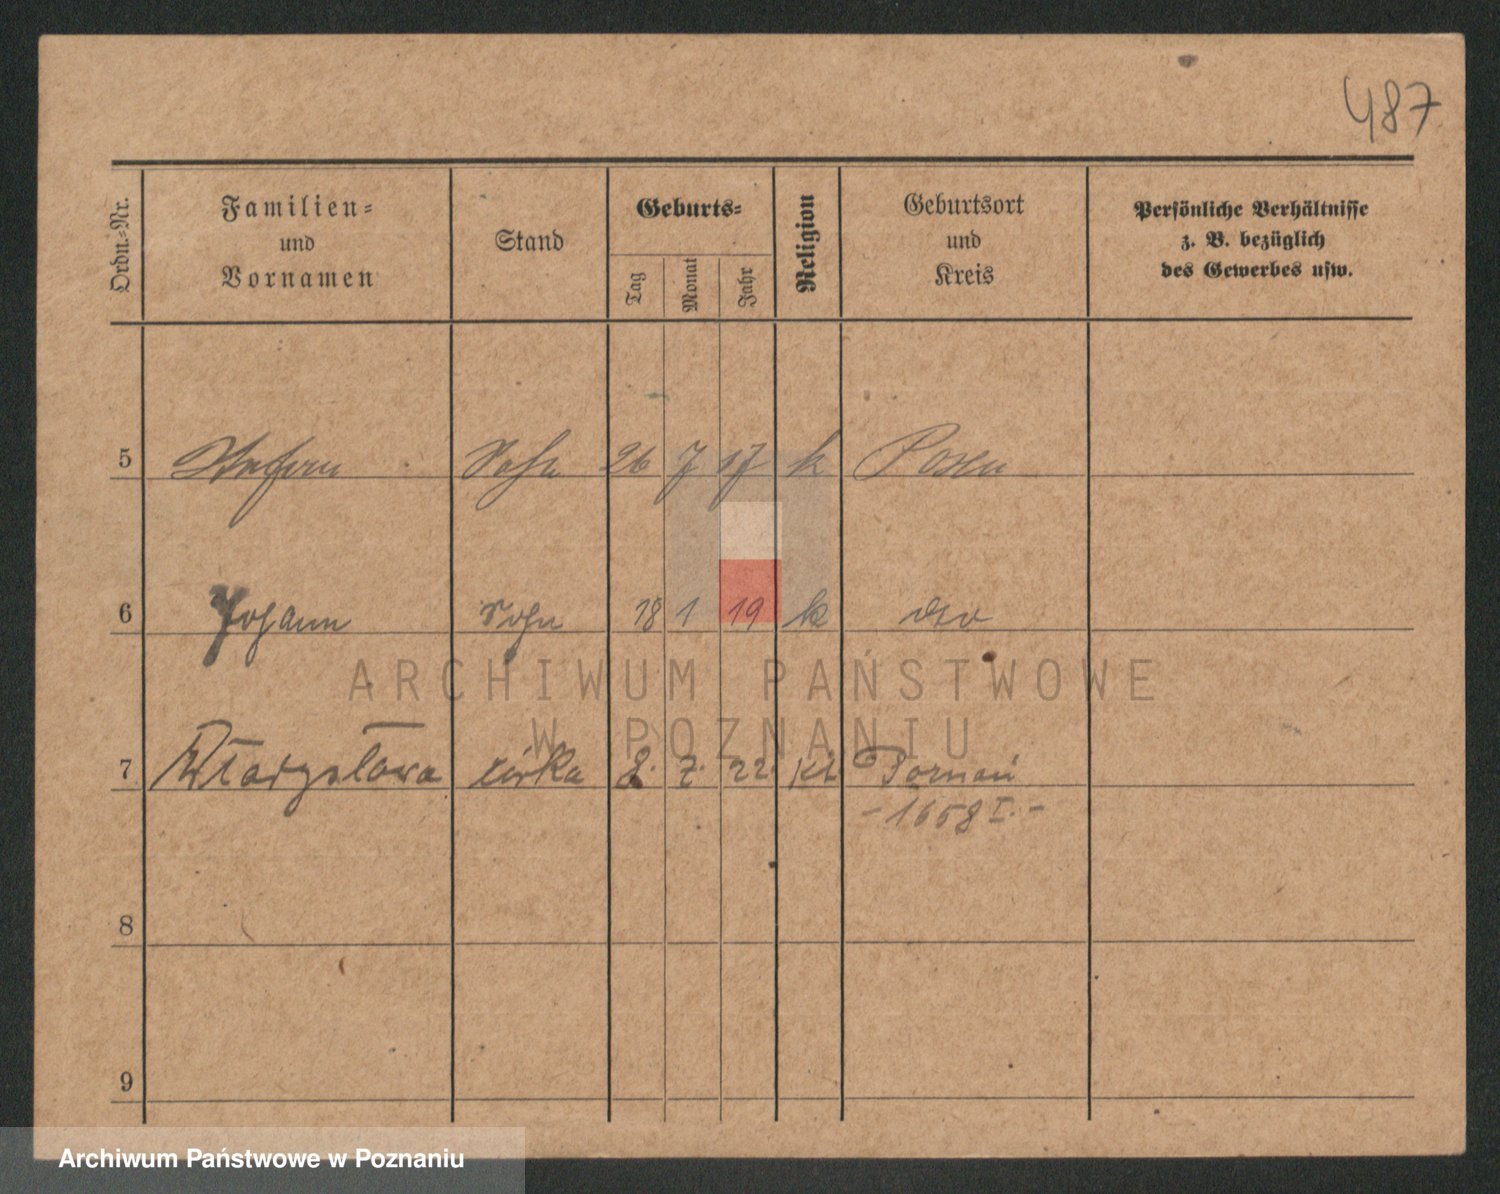 487
Ordn.-Nr.
Familien-
und
Vornamen
Stand
Geburts-
Tag
Monat
Jahr
Religion
Geburtsort
und
Kreis
Persönliche Verhältnisse
z. B. bezüglich
des Gewerbes usw.
5 Stefan Sohn 26 7 17 k Posen
6 Johann Sohn 18 1 19 k dto
7 Władysława córka 8. 7. 22. kt Poznań
- 1658 I. -
8
9
ARCHIWUM PAŃSTWOWE
W POZNANIU
Archiwum Państwowe w Poznaniu